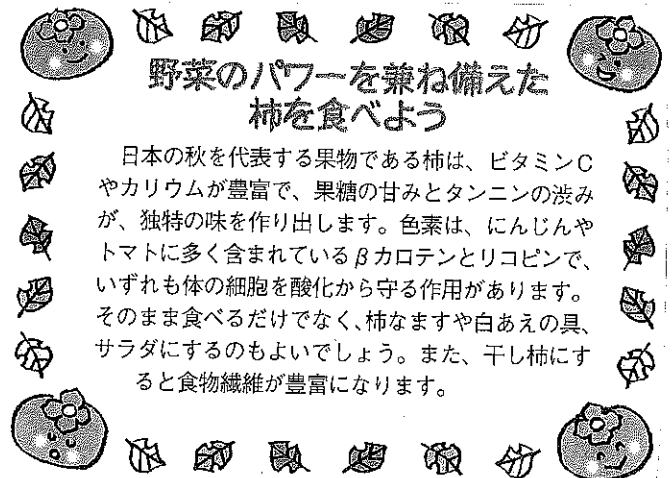 野菜のパワーを兼ね備えた
柿を食べよう
日本の秋を代表する果物である柿は、ビタミンC
やカリウムが豊富で、果糖の甘みとタンニンの渋み
が、独特の味を作り出します。色素は、にんじんや
トマトに多く含まれているβカロテンとリコピンで、
いずれも体の細胞を酸化から守る作用があります。
そのまま食べるだけでなく、柿なますや白あえの具、
サラダにするのもよいでしょう。また、干し柿にす
ると食物繊維が豊富になります。